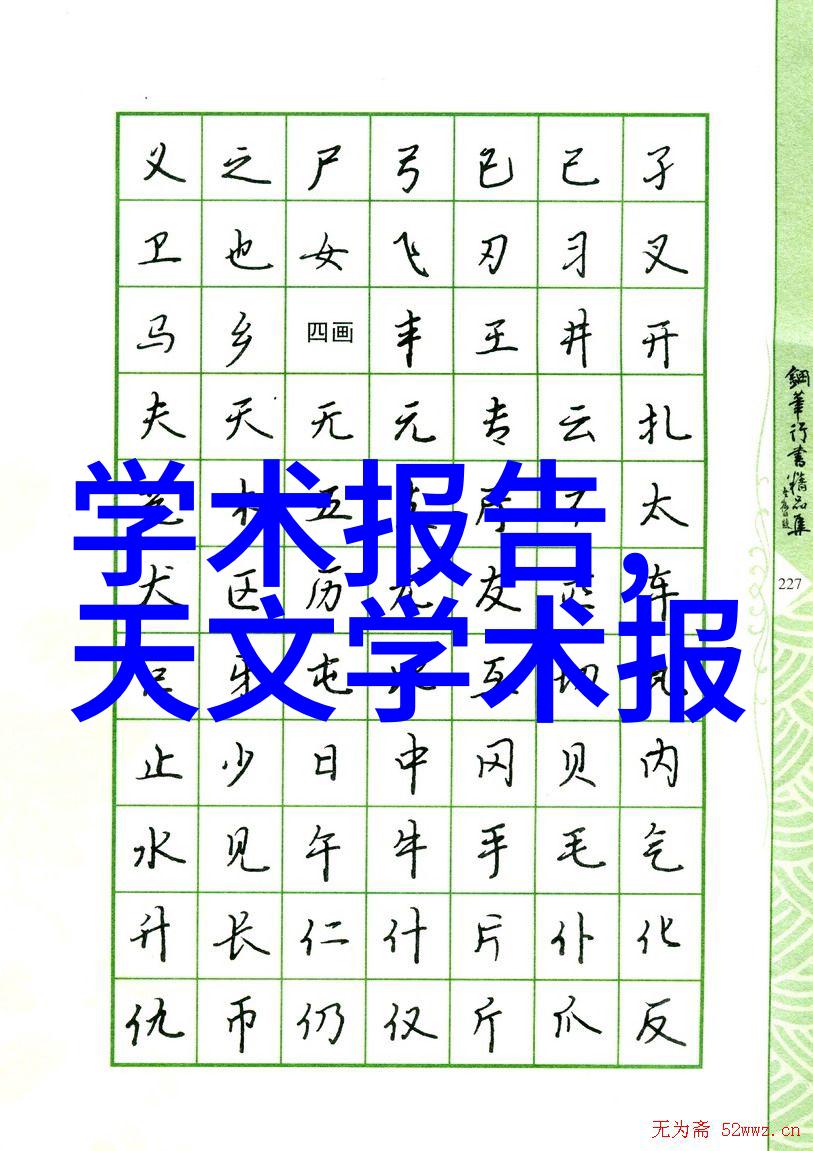 义 之 尸 弓 已 己 子
卫 也 女 飞 刃 习 叉
马 乡 四画 丰 王 井 开
夫 天 无 元 专 云 扎
五 太
学术报告,
犬 区 历 友 车
天文学术报
牙 屯 互 切
止 少 日 中 冈 贝 内
水 见 午 牛 手 毛 气
升 长 仁 什 片 仆 化
仇 币 仍 仅 斤 爪 反
钢笔行书精品集
227
无为斋 52wwz.cn